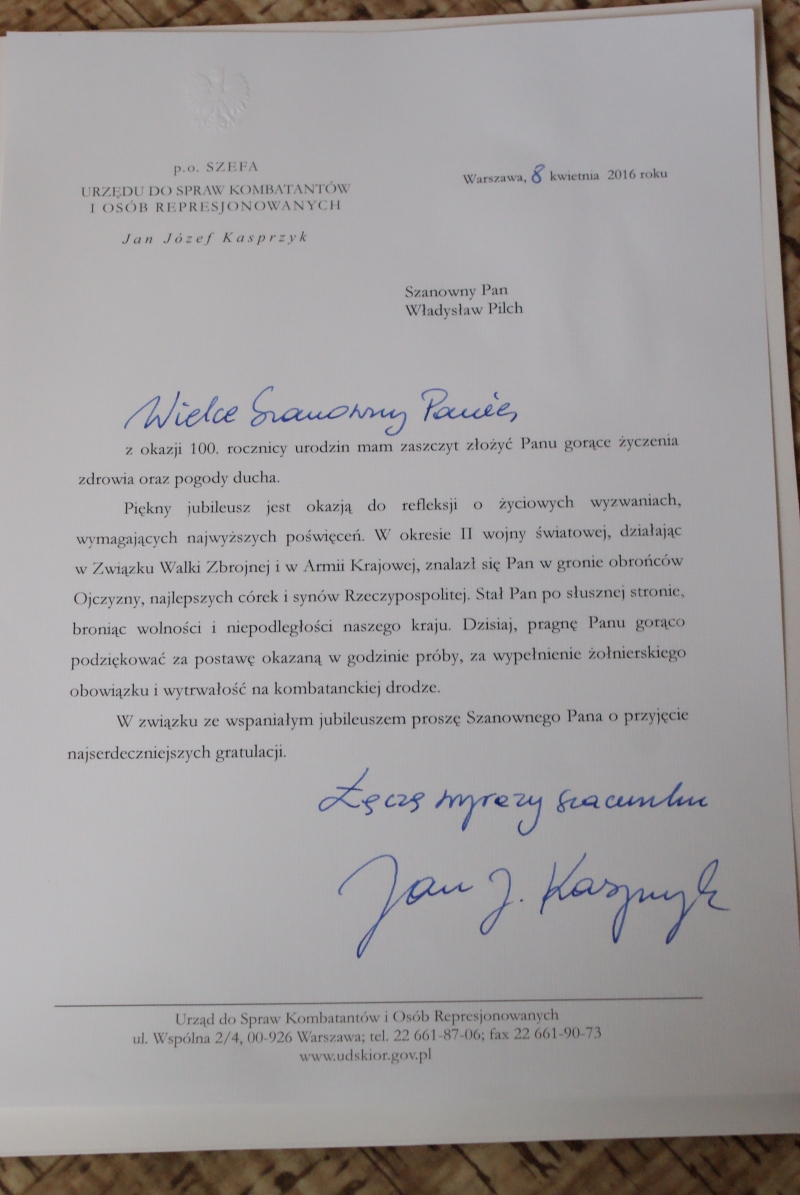 p.o. SZEFA
URZĘDU DO SPRAW KOMBATANTÓW
I OSÓB REPRESJONOWANYCH
Jan Józef Kasprzyk
Warszawa, 8 kwietnia 2016 roku
Szanowny Pan
Władysław Pilch
Wielce Szanowny Panie,
z okazji 100. rocznicy urodzin mam zaszczyt złożyć Panu gorące życzenia
zdrowia oraz pogody ducha.
Piękny jubileusz jest okazją do refleksji o życiowych wyzwaniach,
wymagających najwyższych poświęceń. W okresie II wojny światowej, działając
w Związku Walki Zbrojnej i w Armii Krajowej, znalazł się Pan w gronie obrońców
Ojczyzny, najlepszych córek i synów Rzeczypospolitej. Stał Pan po słusznej stronie,
broniąc wolności i niepodległości naszego kraju. Dzisiaj, pragnę Panu gorąco
podziękować za postawę okazaną w godzinie próby, za wypełnienie żołnierskiego
obowiązku i wytrwałość na kombatanckiej drodze.
W związku ze wspaniałym jubileuszem proszę Szanownego Pana o przyjęcie
najserdeczniejszych gratulacji.
Łączę wyrazy szacunku
Jan J. Kasprzyk
Urząd do Spraw Kombatantów i Osób Represjonowanych
ul. Wspólna 2/4, 00-926 Warszawa; tel. 22 661-87-06; fax 22 661-90-73
www.udskior.gov.pl